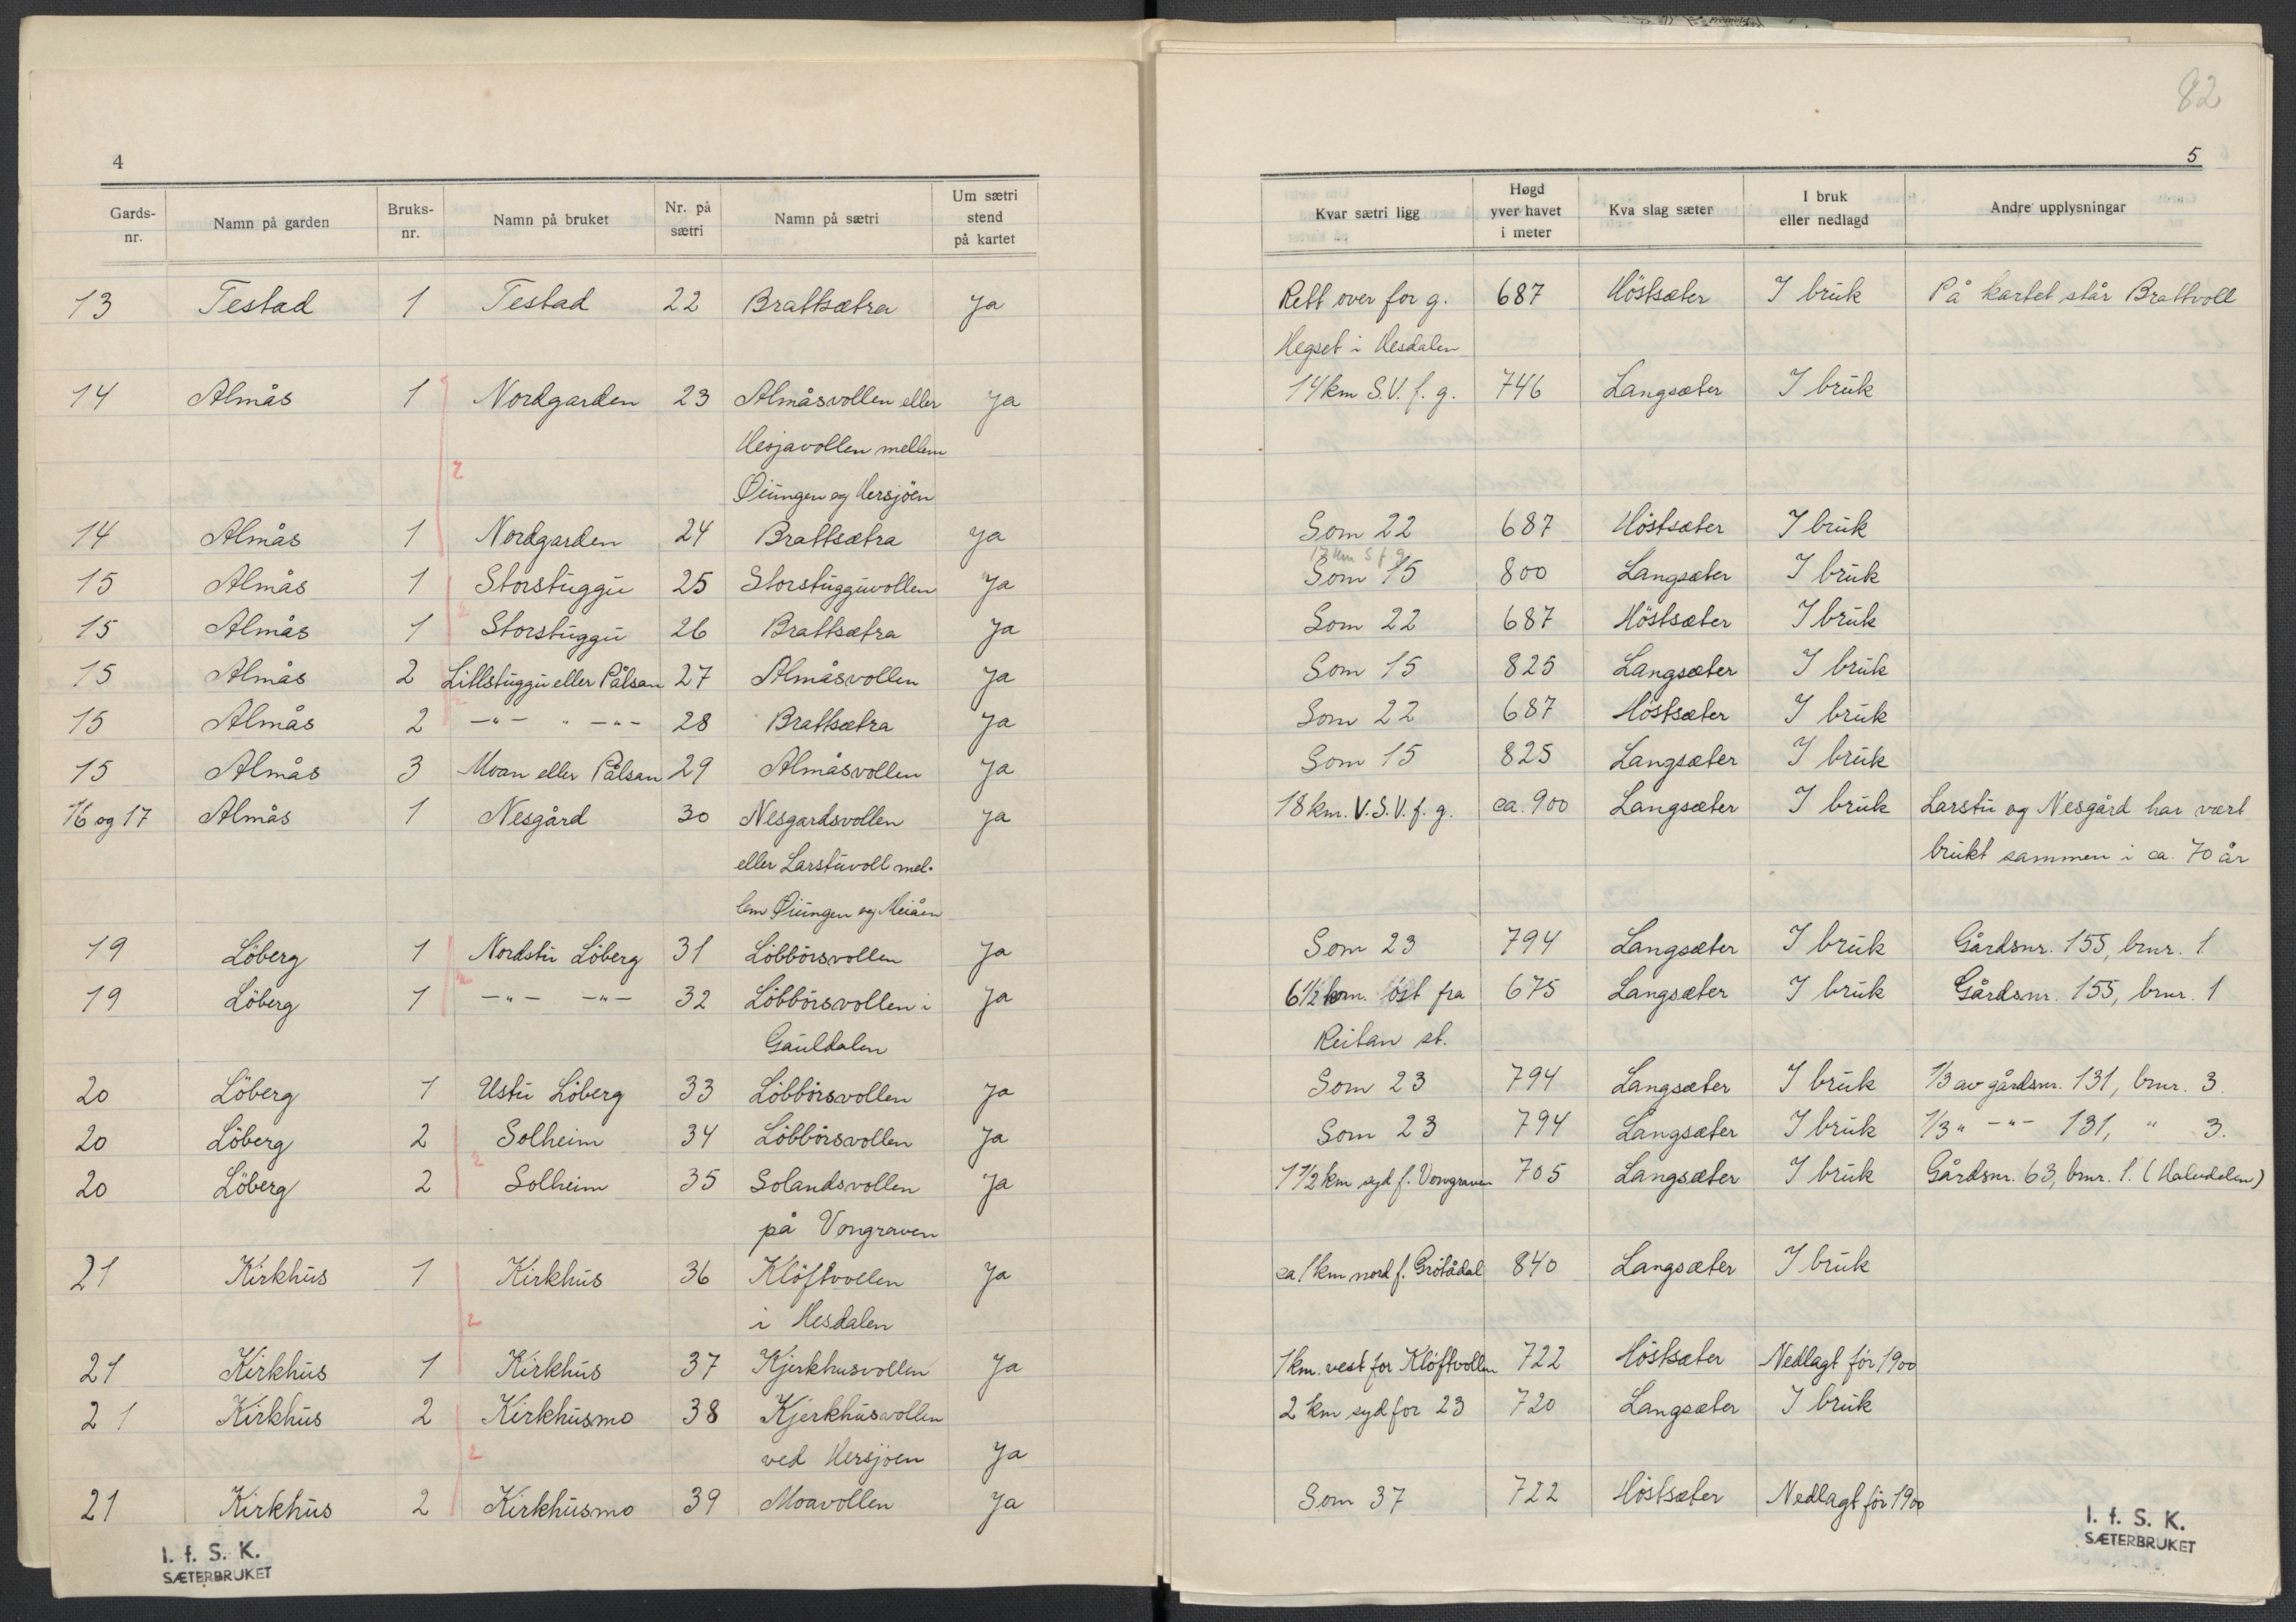 82
4
5
Gards-nr. Namn på garden Bruks-nr. Namn på bruket Nr. på sætri Namn på sætri Um sætri stend på kartet Kvar sætri ligg Høgd yver havet i meter Kva slag sæter I bruk eller nedlagd Andre upplysningar
13 Testad 1 Testad 22 Brattsætra Ja Rett over for g. 687 Höstsæter I bruk På kartet står Brattvoll
Hegset i Hesdalen
14 Almås 1 Nordgarden 23 Almåsvollen eller Ja 14 km S.V. f. g. 746 Langsæter I bruk
Hesjavollen mellem
2
Øiungen og Hersjöen
14 Almås 1 Nordgarden 24 Brattsætra Ja Som 22 687 Höstsæter I bruk
17 km S f. g.
15 Almås 1 Storstuggu 25 Storstugguvollen Ja Som 15 800 Langsæter I bruk
2
15 Almås 1 Storstuggu 26 Brattsætra Ja Som 22 687 Höstsæter I bruk
15 Almås 2 Lillstuggu eller Pålsan 27 Almåsvollen Ja Som 15 825 Langsæter I bruk
2
15 Almås 2 -"- " -"- 28 Brattsætra Ja Som 22 687 Höstsæter I bruk
15 Almås 3 Moan eller Pålsan 29 Almåsvollen Ja Som 15 825 Langsæter I bruk
16 og 17 Almås 1 Nesgård 30 Nesgardsvollen Ja 18 km. V.S.V. f. g. ca. 900 Langsæter I bruk Larstu og Nesgård har vært
eller Larstuvoll mel- brukt sammen i ca. 70 år
lem Øiungen og Meiåen
19 Löberg 1 Nordstu Löberg 31 Löbbörsvollen Ja Som 23 794 Langsæter I bruk Gårdsnr. 155, brnr. 1
2
19 Löberg 1 -"- -"- 32 Löbbörsvollen i Ja 6 1/2 km. öst fra 675 Langsæter I bruk Gårdsnr. 155, brnr. 1
Gauldalen Reitan st.
20 Löberg 1 Ustu Löberg 33 Löbbörsvollen Ja Som 23 794 Langsæter I bruk 1/3 av gårdsnr. 131, brnr. 3.
20 Löberg 2 Solheim 34 Löbbörsvollen Ja Som 23 794 Langsæter I bruk 1/3 " -"- 131, " 3.
2
20 Löberg 2 Solheim 35 Solandsvollen Ja 1 1/2 km syd f. Vongraven 705 Langsæter I bruk Gårdsnr. 63, brnr. 1. (Haludalen)
på Vongraven
21 Kirkhus 1 Kirkhus 36 Klöftvollen Ja ca 1 km nord f. Grötådal 840 Langsæter I bruk
i Hesdalen
2
21 Kirkhus 1 Kirkhus 37 Kjerkhusvollen Ja 1 km. vest for Klöftvollen 722 Höstsæter Nedlagt för 1900
21 Kirkhus 2 Kirkhusmo 38 Kjerkhusvollen 2 km syd for 23 720 Langsæter I bruk
2
ved Hersjöen Ja
21 Kirkhus 2 Kirkhusmo 39 Moavollen Ja Som 37 722 Höstsæter Nedlagt för 1900
I. f. S. K.
SÆTERBRUKET
I. f. S. K.
SÆTERBRUKET